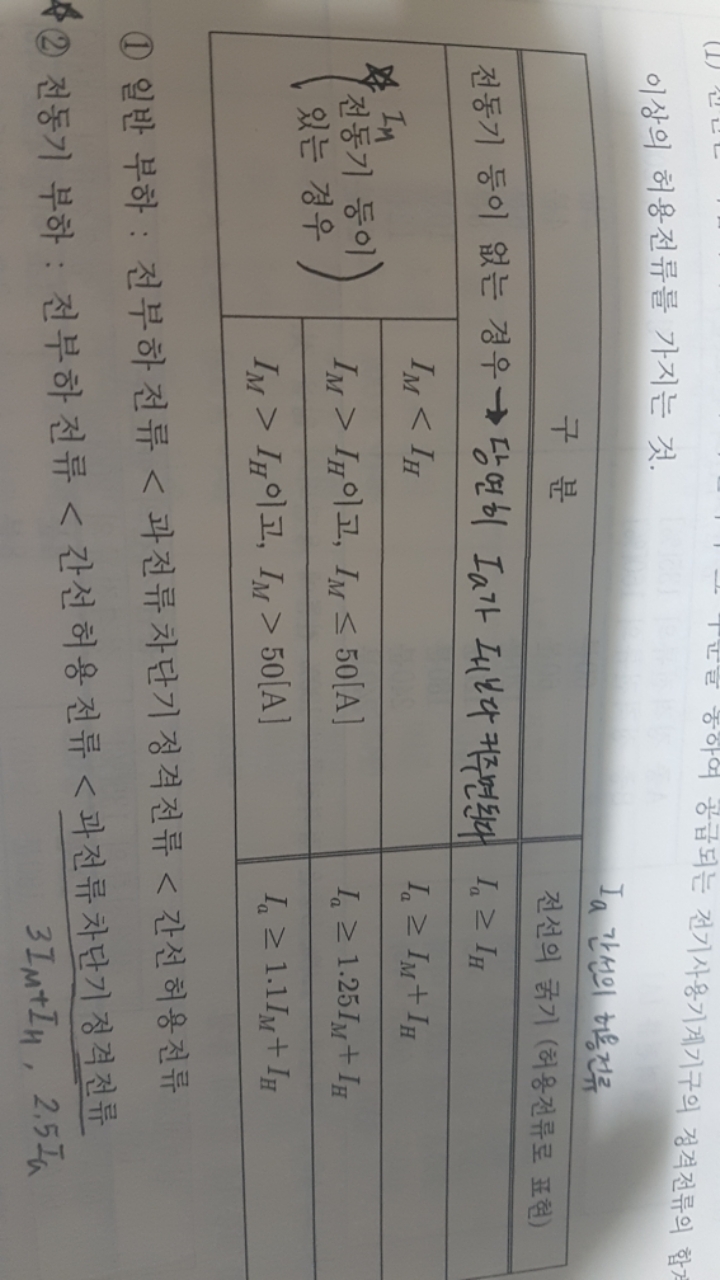 이상의 허용전류를 가지는 것.
공급되는 전기사용기계기구의 정격전류의 합계
Ia 간선의 허용전류
구 분
전선의 굵기 (허용전류로 표현)
전동기 등이 없는 경우 → 당연히 Ia가 IH보다 커주면된다
Ia ≥ IH
☆ IM
(전동기 등이
있는 경우)
IM < IH
Ia ≥ IM + IH
IM > IH이고, IM ≤ 50[A]
Ia ≥ 1.25IM + IH
IM > IH이고, IM > 50[A]
Ia ≥ 1.1IM + IH
① 일반 부하 : 전부하 전류 < 과전류 차단기 정격전류 < 간선 허용 전류
☆② 전동기 부하 : 전부하 전류 < 간선 허용 전류 < 과전류 차단기 정격전류
3IM+IH, 2.5Ia